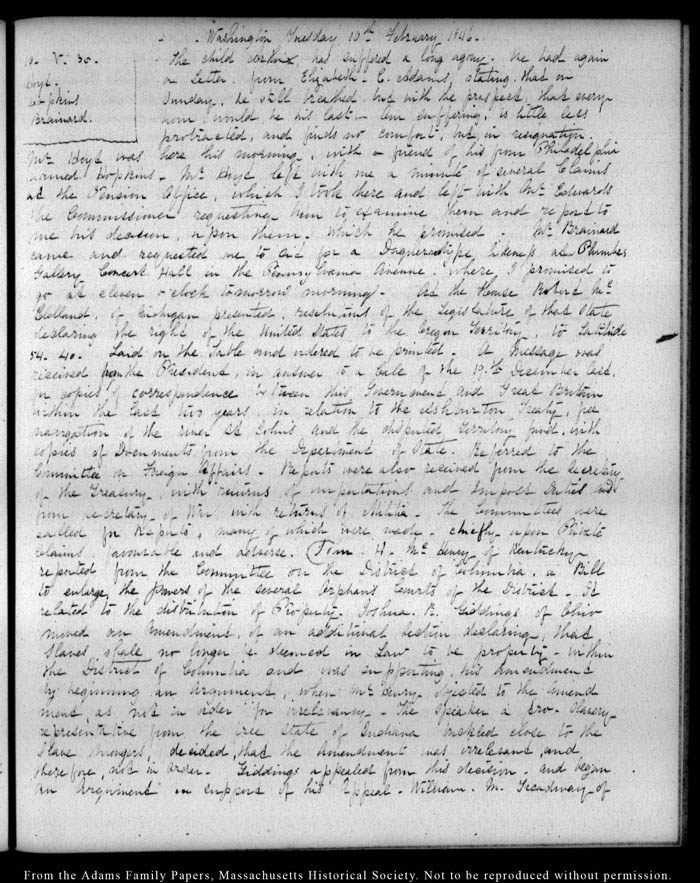 Washington Tuesday 10th February 1846.
10. V. 30.
Hoyt.
Hopkins
Brainard.
The child Arthur, has suffered a long agony. We had again
a Letter from Elizabeth C. Adams, stating that on
Sunday, he still breathed, but with the prospect, that every
hour would be his last. Our suffering, is little less
protracted, and finds no comfort, but in resignation.
Mr Hoyt was here this morning, with a friend of his from Philadelphia
named Hopkins. Mr Hoyt left with me a minute of several Claims
at the Pension Office, which I took there and left with Mr Edwards
the Commissioner requesting him to examine them and report to
me his decision, upon them. which he promised. Mr Brainard
came and requested me to sit for a Daguerreotype, likeness at Plumbes
Gallery Concert Hall in the Pennsylvania Avenue. where, I promised to
go at eleven o'clock tomorrow morning. At the House Robert Mc
Clelland, of Michigan presented, resolutions of the Legislature of that State
declaring the right of the United States to the Oregon Territory, to Latitude
54. 40. Laid on the Table and ordered to be printed. A Message was
received from the President, in answer to a Call of the 19th December last,
for copies of correspondence between this Government and Great Britain
within the last two years, in relation to the Washington Treaty, free
navigation of the river St Johns and the disputed Territory fund, with
copies of Documents from the Department of State. Referred to the
Committee on Foreign Affairs. Reports were also received from the Secretary
of the Treasury, with returns of importations and Impost Duties and
from Secretary of War with returns of Militia. The Committees were
called for Reports, many of which were made. chiefly upon Private
claims, favourable and adverse. John H. McHenry of Kentucky
reported from the Committee on the District of Columbia, a Bill
to enlarge, the powers of the several Orphans Courts of the District. It
related to the distribution of Property. Joshua R. Giddings of Ohio
moved an Amendment, of an additional Section declaring, that
Slaves shall no longer be deemed in Law to be property within
the District of Columbia and was supporting, his amendment
by beginning an Argument, when McHenry objected to the amend
ment, as not in order for irrelevancy. The Speaker a pro-Slavery
representative from the free State of Indiana buckled close to the
Slave mongers, decided, that the amendment was irrelevant and
therefore, not in order. Giddings appealed from this decision. and began
an argument in support of his Appeal. William. M. Treadway of
From the Adams Family Papers, Massachusetts Historical Society. Not to be reproduced without permission.